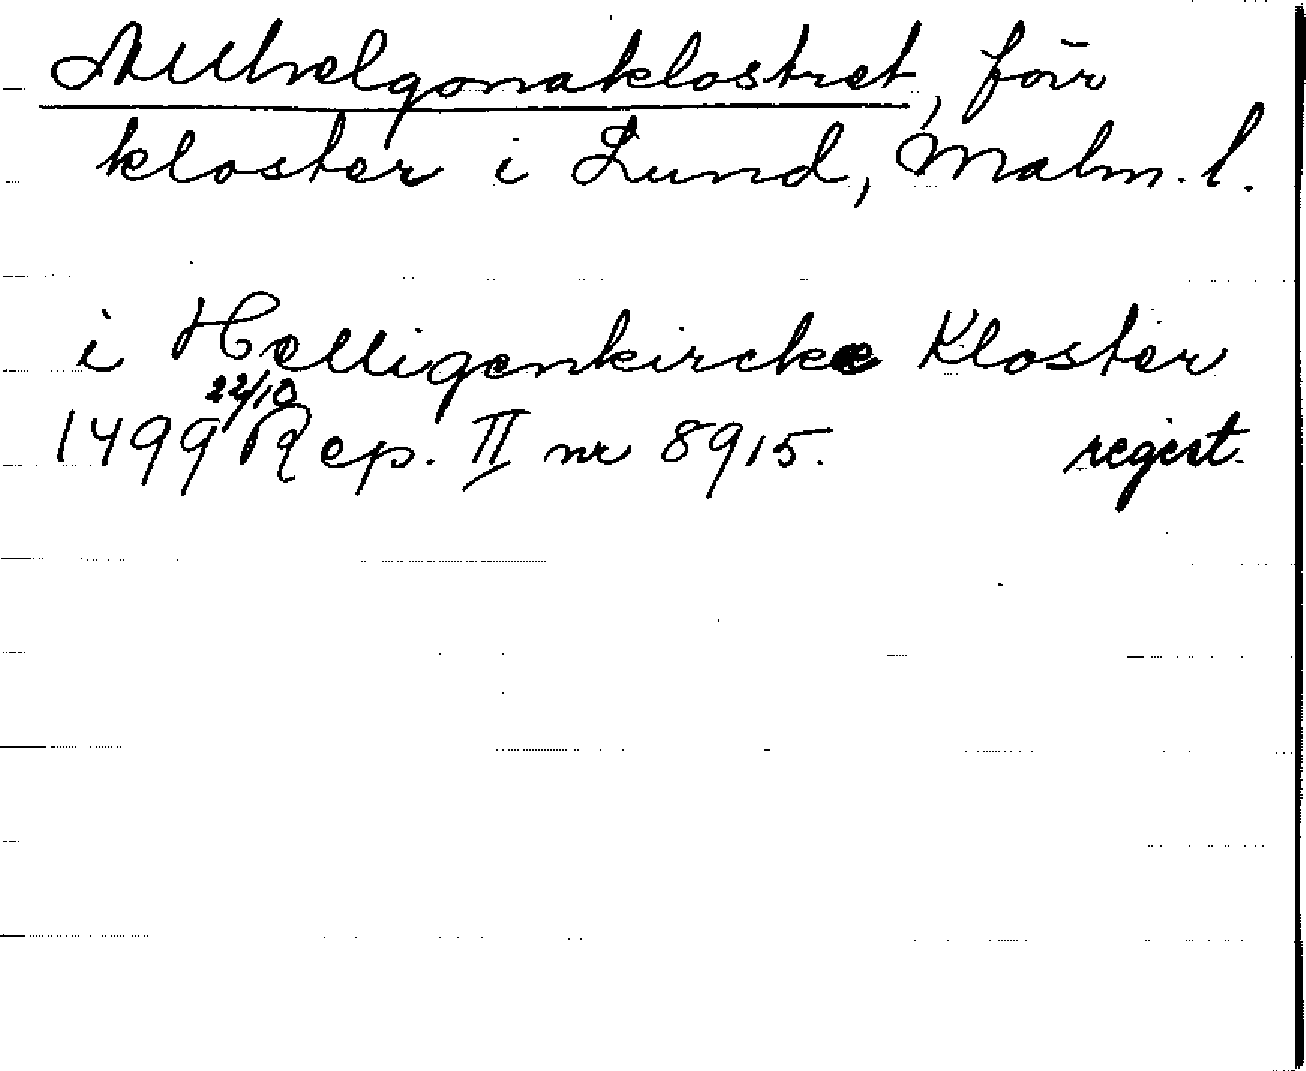 Allhelgonaklostret, förr
kloster i Lund, Malm. l.
i Helligenkircke Kloster
1499 22/10 Rep. II nr 8915. regest.